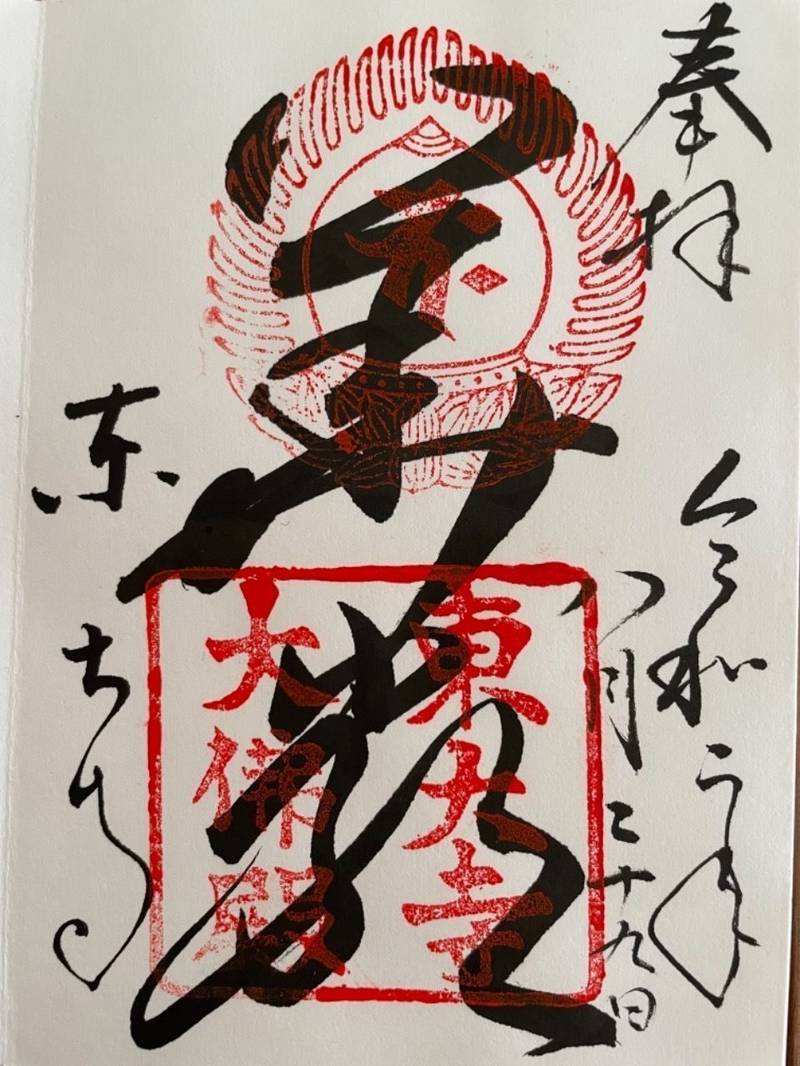 奉拝
令和二年
八月二十九日
華厳
東大寺
大佛殿
東大寺